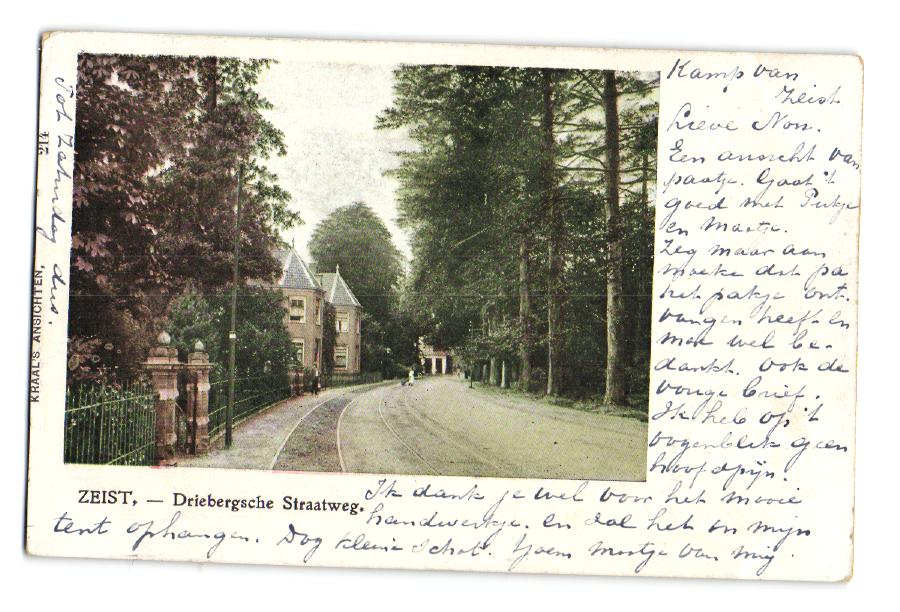 Kamp van
Zeist
Lieve Non.
Een ansicht van
paatje. Gaat 't
goed met Putje
en Maatje.
Zeg maar aan
moeke dat pa
het pakje ont-
vangen heeft en
mee wel be-
dankt. Ook de
vorige brief.
Ik heb op 't
oogenblik geen
hoofdpijn.
Ik dank je wel voor het mooie
handwerkje. En zal het in mijn
tent ophangen. Dag kleine schat. Zoen Moetje van mij.
Tot Zaterdag dus.
ZEIST, — Driebergsche Straatweg.
KRAAL'S ANSICHTEN, 214